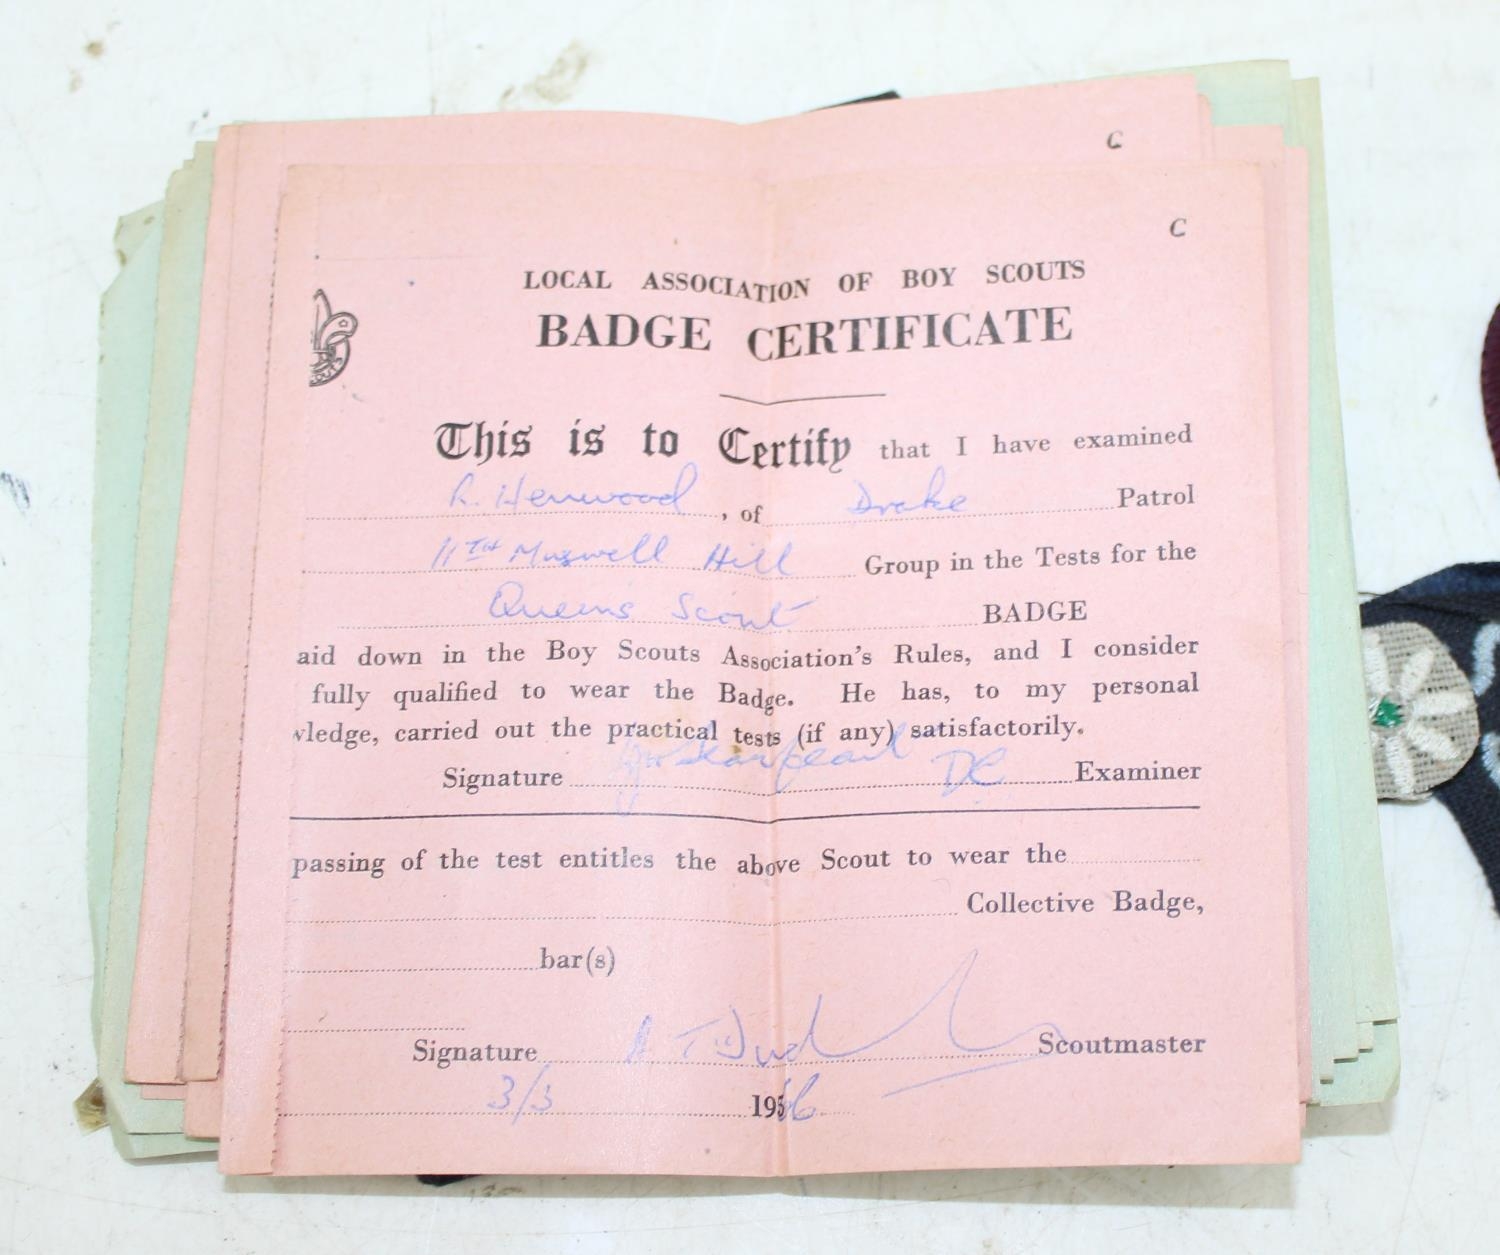 C
C
LOCAL ASSOCIATION OF BOY SCOUTS
BADGE CERTIFICATE
This is to Certify that I have examined
R. Henwood, of Drake Patrol
11TH Muswell Hill Group in the Tests for the
Queens Scout BADGE
aid down in the Boy Scouts Association's Rules, and I consider
fully qualified to wear the Badge. He has, to my personal
wledge, carried out the practical tests (if any) satisfactorily.
Signature DC Examiner
passing of the test entitles the above Scout to wear the
Collective Badge,
bar(s)
Signature Scoutmaster
3/3 1966